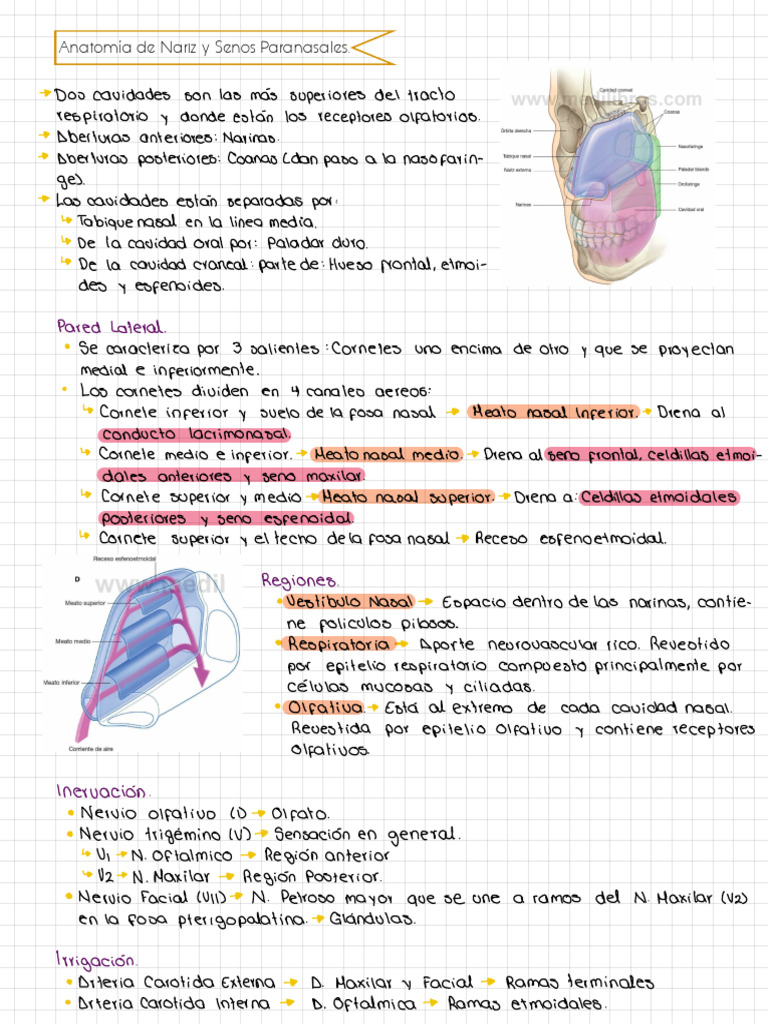 Anatomía de Nariz y Senos Paranasales.
→ Dos cavidades son las más superiores del tracto
respiratorio y donde están los receptores olfatorios.
→ Aberturas anteriores: Narinas.
→ Aberturas posteriores: Coanas (dan paso a la nasofarin-
ge).
→ Las cavidades están separadas por:
↳ Tabique nasal en la linea media.
↳ De la cavidad oral por: Paladar duro.
↳ De la cavidad craneal: parte de: Hueso frontal, etmoi-
des y esfenoides.
www.medilibros.com
Cavidad craneal
Coanas
Órbita derecha
Nasofaringe
Tabique nasal
Paladar blando
Nariz externa
Orofaringe
Narinas
Cavidad oral
Pared Lateral.
• Se caracteriza por 3 salientes: Cornetes uno encima de otro y que se proyectan
medial e inferiormente.
• Los cornetes dividen en 4 canales aereos:
↳ Cornete inferior y suelo de la fosa nasal → Meato nasal Inferior. → Drena al
conducto lacrimonasal.
↳ Cornete medio e inferior. → Meato nasal medio. → Drena al seno frontal, celdillas etmoi-
dales anteriores y seno maxilar.
↳ Cornete superior y medio → Meato nasal superior. → Drena a: Celdillas etmoidales
posteriores y seno esfenoidal.
↳ Cornete superior y el techo de la fosa nasal → Receso esfenoetmoidal.
Receso esfenoetmoidal
D
www.medil
Meato superior
Meato medio
Meato inferior
Corriente de aire
Regiones.
• Vestíbulo Nasal → Espacio dentro de las narinas, contie-
ne foliculos pilosos.
• Respiratoria → Aporte neurovascular rico. Revestido
por epitelio respiratorio compuesto principalmente por
células mucosas y ciliadas.
• Olfativa. → Está al extremo de cada cavidad nasal.
Revestida por epitelio olfativo y contiene receptores
olfativos.
Inervación.
• Nervio olfativo (I) → Olfato.
• Nervio trigémino (V) → Sensación en general.
↳ V1 → N. Oftalmico → Región anterior
↳ V2 → N. Maxilar → Región Posterior.
• Nervio Facial (VII) → N. Petroso mayor que se une a ramos del N. Maxilar (V2)
en la fosa pterigopalatina. → Glándulas.
Irrigación.
• Arteria Carotida Externa → A. Maxilar y Facial → Ramas terminales
• Arteria Carotida Interna → A. Oftalmica → Ramas etmoidales.